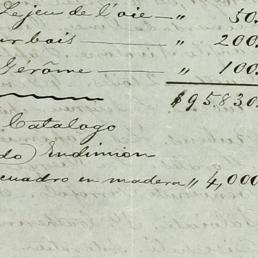 Le jeu de l'oie — " 50
urbois — " 200
Gérôme — " 100
$95.830
Catalogo
do) Endimion
cuadro en madera " 4,000